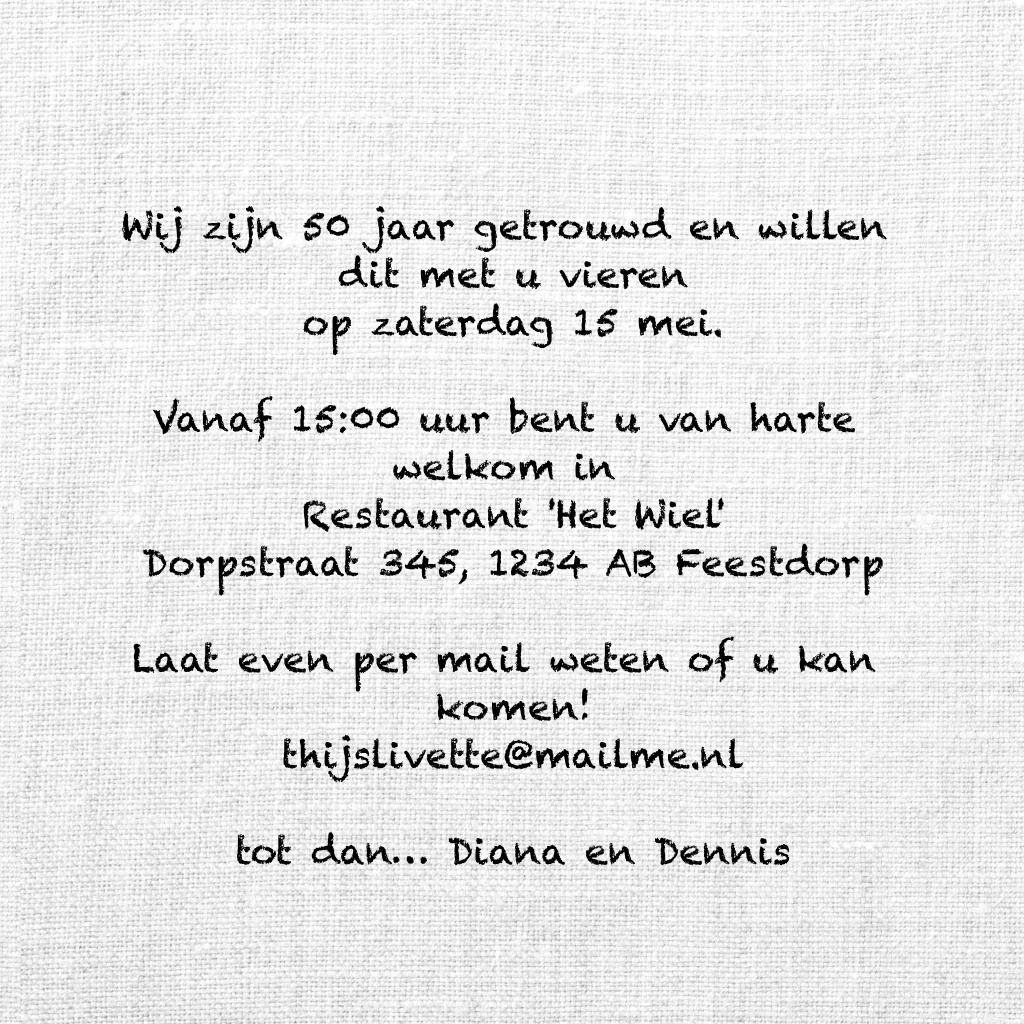 Wij zijn 50 jaar getrouwd en willen
dit met u vieren
op zaterdag 15 mei.
Vanaf 15:00 uur bent u van harte
welkom in
Restaurant 'Het Wiel'
Dorpstraat 345, 1234 AB Feestdorp
Laat even per mail weten of u kan
komen!
thijslivette@mailme.nl
tot dan... Diana en Dennis